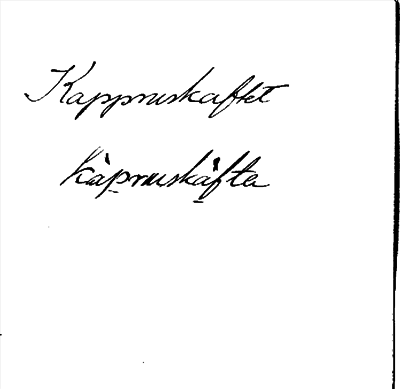 Kappruskaftet
kàpruskàfta